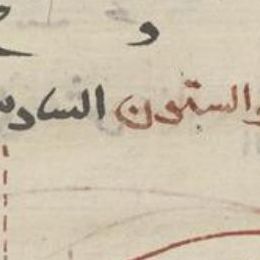 و
والستون السادس